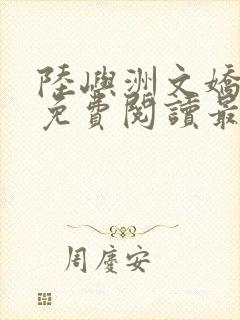 陸嶼洲文嬌
免費閱讀最
周慶安